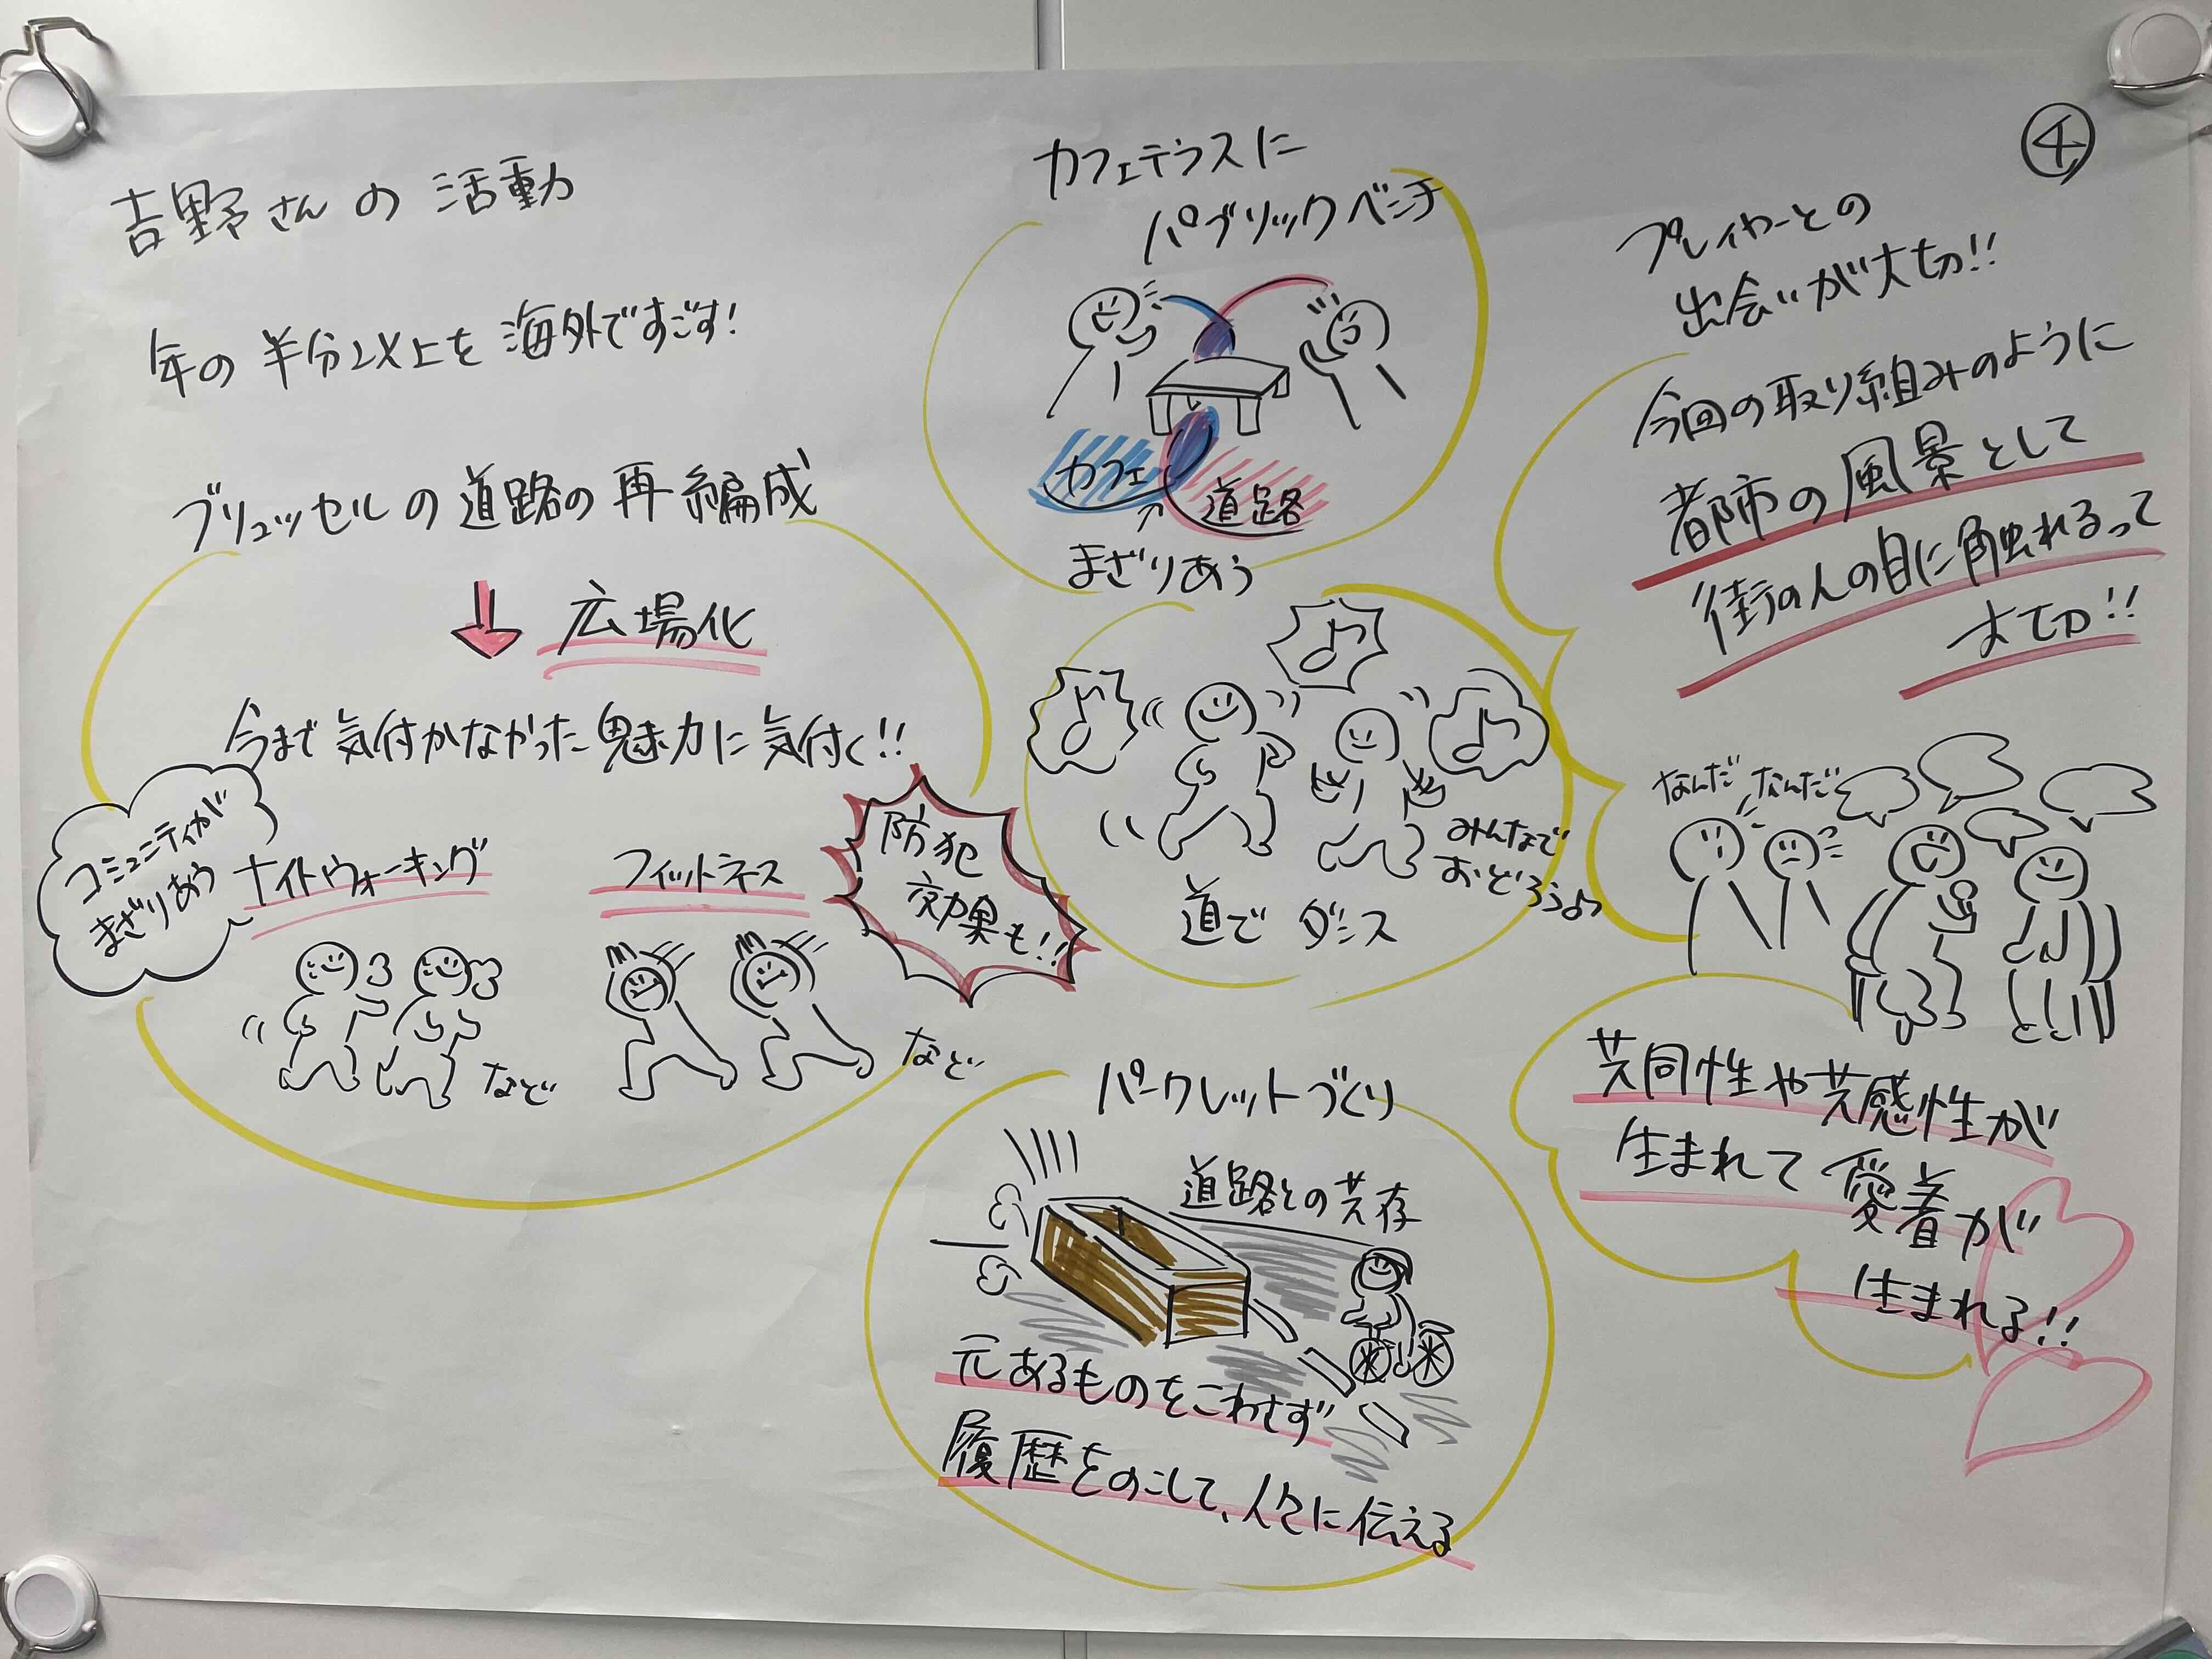 ④
吉野さんの活動
年の半分以上を海外ですごす!
ブリュッセルの道路の再編成
広場化
今まで気付かなかった魅力に気付く!!
コミュニティが
まざりあう
ナイトウォーキング
など
フィットネス
など
防犯
効果も!!
カフェテラスに
パブリックベンチ
カフェ
道路
まざりあう
みんなで
おどろうよっ
道でダンス
パークレットづくり
道路との共存
元あるものをこわさず
履歴をのこして、人々に伝える
プレイヤーとの
出会いが大切!!
今回の取り組みのように
都市の風景として
街の人の目に触れるって
大切!!
なんだ なんだ
共同性や共感性が
生まれて愛着が
生まれる!!